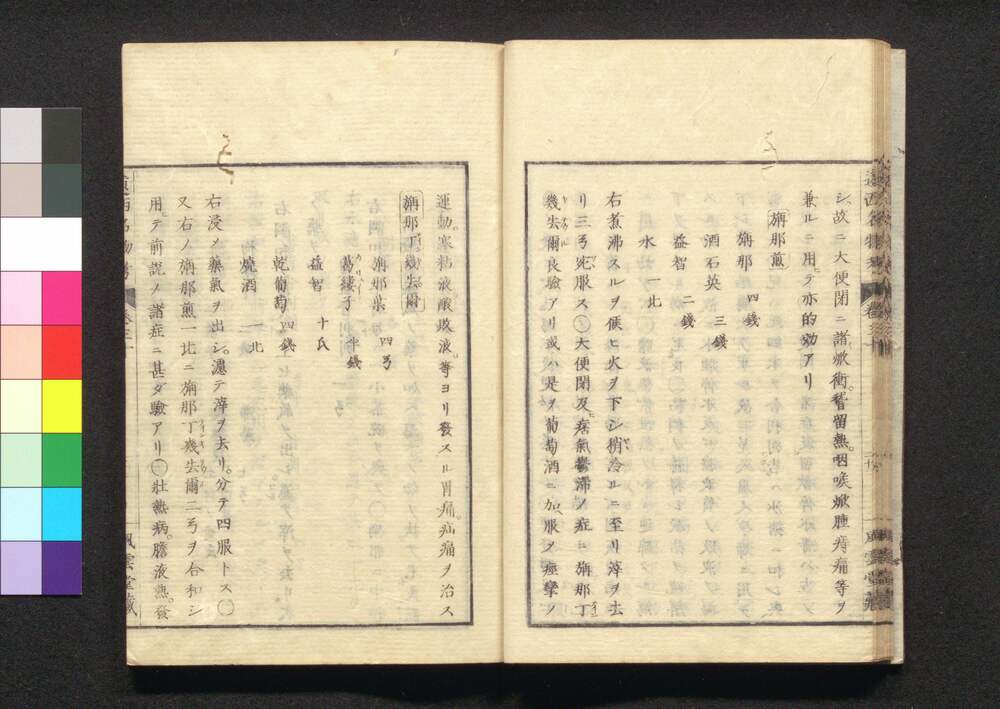 シ故ニ大便閉ニ諸焮衝。稽留熱。咽喉焮腫痔痛等ヲ
兼ルニ用テ亦的効アリ
旃那煎
旃那 四錢
酒石英 三錢
益智 二錢
水 一北
右煮沸スルヲ候ヒ火ヲ下シ稍冷ルニ至リ滓ヲ去
リ三弓宛服ス〇大便閉及痞氣鬱滞ノ症ニ旃那丁
幾去爾良驗アリ或ハ是ヲ葡萄酒ニ加服ヲ痙攣ノ
運動寒粘液酸敗液等ヨリ發スル胃痛疝痛ヲ治ス
旃那丁幾去爾
旃那葉 四弓
葛縷子 半錢
益智 十氏
乾葡萄 四錢
燒酒 一北
右浸メ藥氣ヲ出シ。濾テ滓ヲ去リ。分テ四服トス〇
又右ノ旃那煎一北ニ旃那丁幾去爾二弓ヲ合和シ
用テ前説ノ諸症ニ甚ダ驗アリ〇壯熱病。膽液熱。發
風雲堂藏